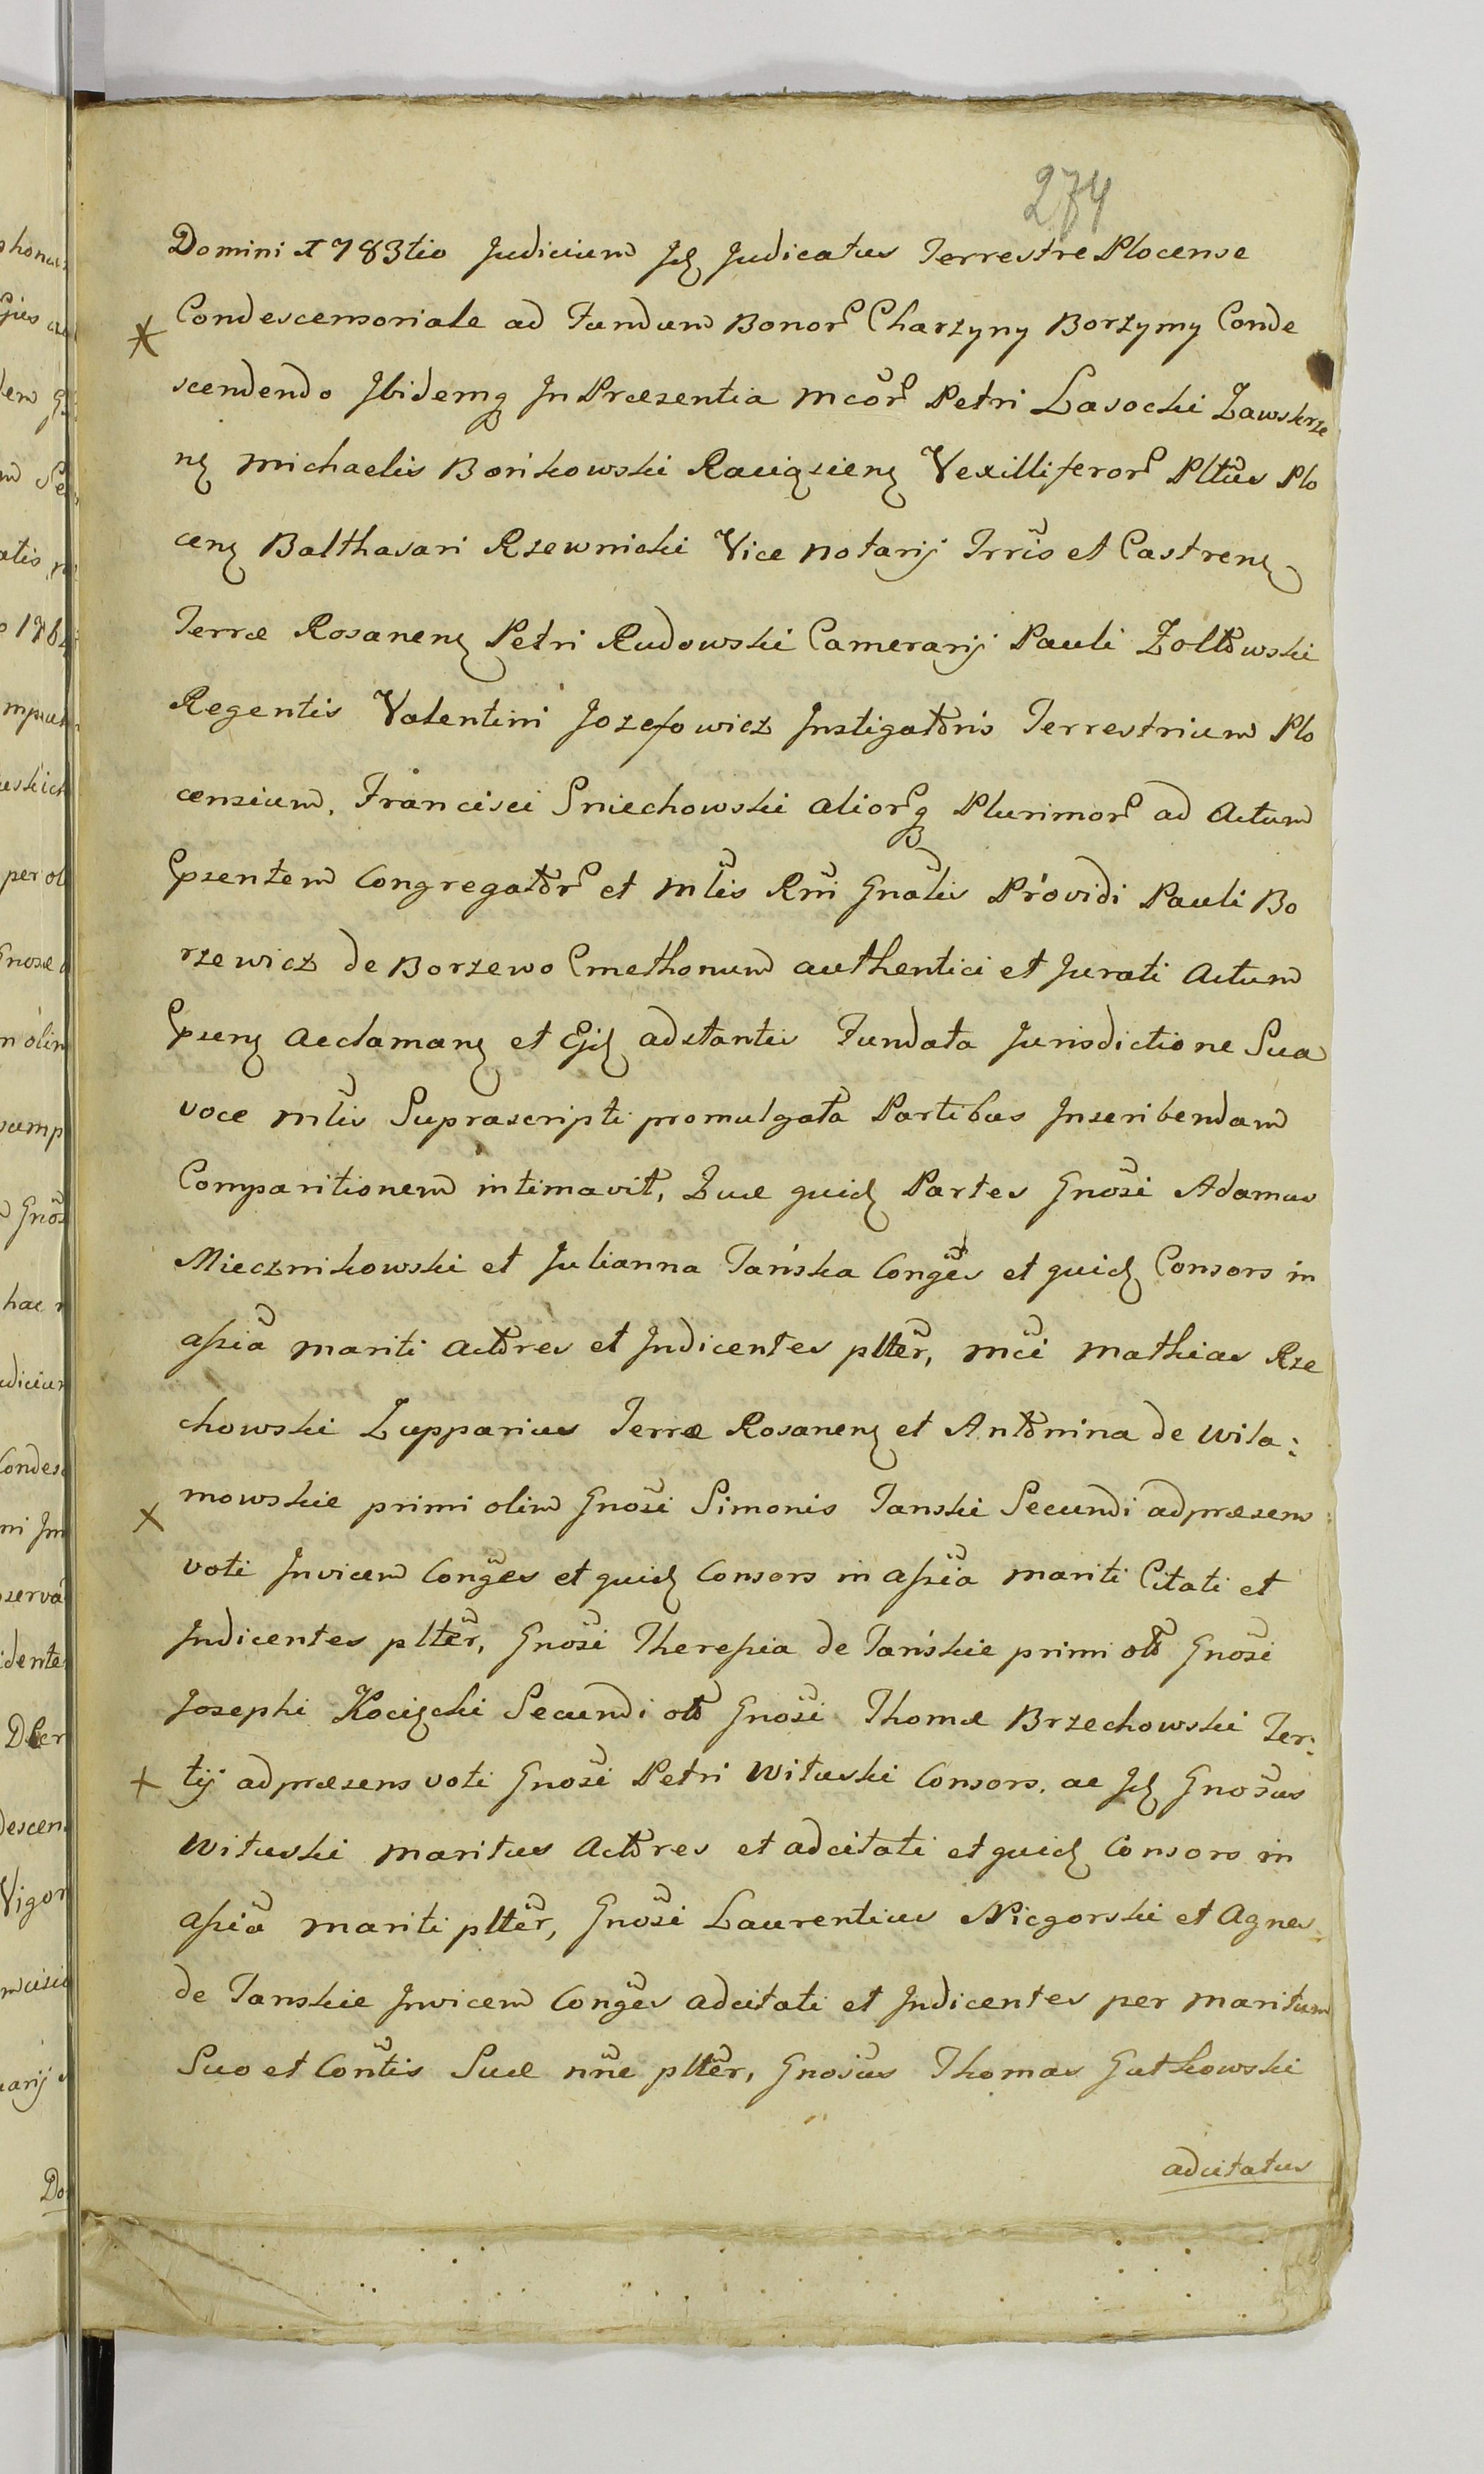 274
Domini 1783tio Judicium Jd Judicatus Terrestre Plocense
Condescensoriale ad Fundum Bonor Charzyny Borzymy Conde
scendendo Jbidemq In Præsentia mcor Petri Lasocki Zawskrze
n Michaelis Bońkowski Raciązien Vexilliferor Pltus Plo
cen Balthasari Rzewnicki Vice Notarij Trris et Castren
Terræ Rosanen Petri Rudowski Camerarij Pauli Zołtowski
Regentis Valentini Jozefowicz Instigatoris Terrestrium Plo
censium, Francisci Sniechowski aliorq Plurimor ad Actum
psentem Congregator et mlis Rni Gnalis Providi Pauli Bo
rzewicz de Borzewo Cmethonum authentici et Jurati Actum
psen Acclaman et Ejd adstantis Fundata Jurisdictione Sua
voce mlis Suprascripti promulgata Partibus Inscribendam
Comparitionem intimavit, Quæ quid Partes Gnosi Adamus
Miecznikowski et Julianna Tańska Conges et quid Consors in
assia mariti Actores et Indicentes plter, mci Mathias Rze
chowski Zupparius Terræ Rosanen et Antonina de Wila:
mowskie primi olim Gnosi Simonis Tanski Secundi adpræsens
voti Invicem Conges et quid Consors in assia mariti Citati et
Indicentes plter, Gnosi Theressia de Tańskie primi olo Gnosi
Josephi Kocięcki Secundi olo Gnosi Thomæ Brzechowski Ter:
tij adpræsens voti Gnosi Petri Wituski Consors, ac Jd Gnosus
Wituski maritus Actores et adcitati et quid Consors in
assia mariti plter, Gnosi Laurentius Nicgorski et Agnes
de Tanskie Invicem Conges adcitati et Indicentes per maritum
Suo et Contis Suæ nne plter, Gnosus Thomas Gutkowski
adcitatus